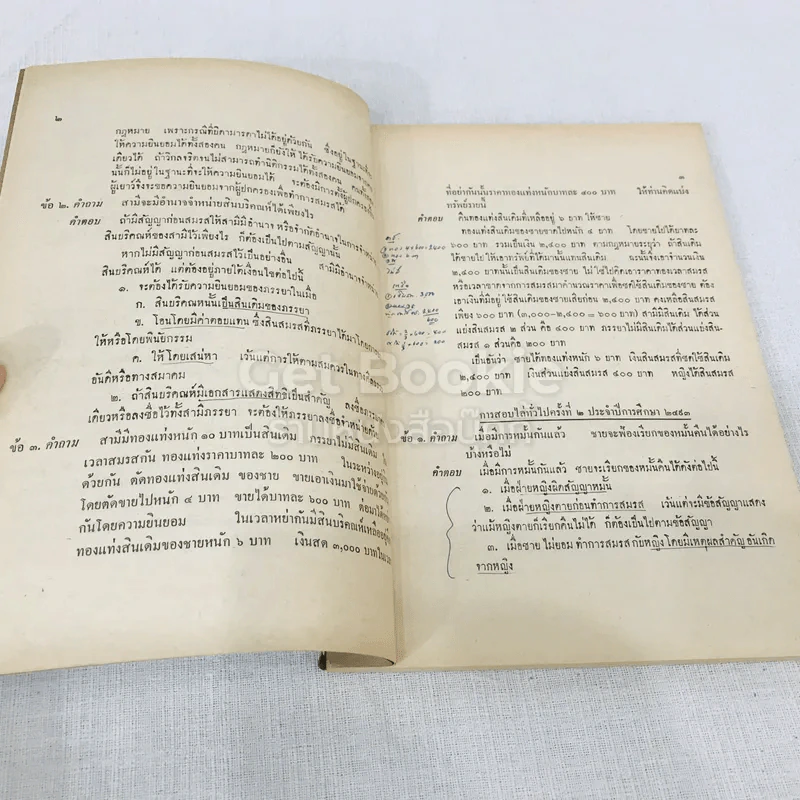 ๒
กฎหมาย เพราะกรณีที่บิดามารดาไม่ได้อยู่ด้วยกัน ซึ่งอยู่ในฐานะที่จะ
ให้ความยินยอมได้ทั้งสองคน กฎหมายก็ยังให้ ได้รับความยินยอม
เดียวได้ ถ้าวิกลจริตจนไม่สามารถทำนิติกรรมได้ทั้งสองคน
นั้นก็ไม่อยู่ในฐานะที่จะให้ความยินยอมได้ จะต้องมีการตั้งผู้ปกครอง
ผู้เยาว์จึงจะขอความยินยอมจากผู้ปกครองเพื่อทำการสมรสได้
ข้อ ๒. คำถาม สามีจะมีอำนาจจำหน่ายสินบริคณห์ได้เพียงไร
คำตอบ ถ้ามีสัญญาก่อนสมรสให้สามีมีอำนาจ หรือจำกัดอำนาจในการจำหน่าย
สินบริคณห์ของสามีไว้เพียงไร ก็ต้องเป็นไปตามสัญญานั้น
หากไม่มีสัญญาก่อนสมรสไว้เป็นอย่างอื่น สามีมีอำนาจจำหน่าย
สินบริคณห์ได้ แต่ต้องอยู่ภายใต้เงื่อนไขต่อไปนี้
๑. จะต้องได้รับความยินยอมของภรรยาในเมื่อ
ก. สินบริคณห์นั้นเป็นสินเดิมของภรรยา
ข. โอนโดยมีค่าตอบแทน ซึ่งสินสมรสที่ภรรยาได้มาโดยการ
ให้หรือโดยพินัยกรรม
ค. ให้โดยเสน่หา เว้นแต่การให้ตามสมควรในทางศีลธรรม
อันดีหรือทางสมาคม
๒. ถ้าสินบริคณห์มีเอกสารแสดงสิทธิเป็นสำคัญ ลงชื่อภรรยา
เดียวหรือลงชื่อไว้ทั้งสามีภรรยา จะต้องให้ภรรยาลงชื่อจำหน่ายด้วย
ข้อ ๓. คำถาม สามีมีทองแท่งหนัก ๑๐ บาทเป็นสินเดิม ภรรยาไม่มีสินเดิม ใน
เวลาสมรสกัน ทองแท่งราคาบาทละ ๒๐๐ บาท ในระหว่างอยู่กิน
ด้วยกัน ตัดทองแท่งสินเดิม ของชาย ขายเอาเงินมาใช้จ่ายด้วยกัน
โดยตัดขายไปหนัก ๔ บาท ขายได้บาทละ ๖๐๐ บาท ต่อมาได้หย่า
กันโดยความยินยอม ในเวลาหย่ากันมีสินบริคณห์เหลืออยู่คือ
ทองแท่งสินเดิมของชายหนัก ๖ บาท เงินสด ๓,๐๐๐ บาทในเวลา
๓
ที่อย่ากันนั้นราคาทองแท่งหนักบาทละ ๔๐๐ บาท ให้ท่านคิดแบ่ง
ทรัพย์รายนี้
คำตอบ คืนทองแท่งสินเดิมที่เหลืออยู่ ๖ บาท ให้ชาย
ทองแท่งสินเดิมของชายขายไปหนัก ๔ บาท โดยขายไปได้บาทละ
๖๐๐ บาท รวมเป็นเงิน ๒,๔๐๐ บาท ตามกฎหมายระบุว่า ถ้าสินเดิม
ได้ขายไป ให้เอาทรัพย์ที่ได้มานั้นแทนสินเดิม ฉะนั้นจึงเอาจำนวนเงิน
๒,๔๐๐ บาทนั้นเป็นสินเดิมของชาย ไม่ใช่ไปคิดเอาราคาทองเวลาสมรส
หรือเวลาขาดจากการสมรสมาคำนวณราคาเพื่อชดใช้สินเดิมของชาย ต้อง
เอาเงินที่มีอยู่ ใช้สินเดิมของชายเสียก่อน ๒,๔๐๐ บาท คงเหลือสินสมรส
เพียง ๖๐๐ บาท (๓,๐๐๐-๒,๔๐๐ = ๖๐๐ บาท) สามีมีสินเดิมได้ส่วน
แบ่งสินสมรส ๒ ส่วน คือ ๔๐๐ บาท ภรรยาไม่มีสินเดิมได้ส่วนแบ่งสิน-
สมรส ๑ ส่วนคือ ๒๐๐ บาท
เป็นอันว่า ชายได้ทองแท่งหนัก ๖ บาท เงินสินสมรสที่ชดใช้สินเดิม
๒,๔๐๐ บาท เงินส่วนแบ่งสินสมรส ๔๐๐ บาท หญิงได้สินสมรส
๒๐๐ บาท
การสอบไล่ทั่วไปครั้งที่ ๒ ประจำปีการศึกษา ๒๔๙๓
ข้อ ๑. คำถาม เมื่อมีการหมั้นกันแล้ว ชายจะฟ้องเรียกของหมั้นคืนได้อย่างไร
บ้างหรือไม่
คำตอบ เมื่อมีการหมั้นกันแล้ว ชายจะเรียกของหมั้นคืนได้ดังต่อไปนี้
๑. เมื่อฝ่ายหญิงผิดสัญญาหมั้น
๒. เมื่อฝ่ายหญิงตายก่อนทำการสมรส เว้นแต่จะมีข้อสัญญาแสดง
ว่าแม้หญิงตายก็เรียกคืนไม่ได้ ก็ต้องเป็นไปตามข้อสัญญา
๓. เมื่อชาย ไม่ยอม ทำการสมรส กับหญิง โดยมีเหตุผลสำคัญ อันเกิด
จากหญิง
Get Bookie